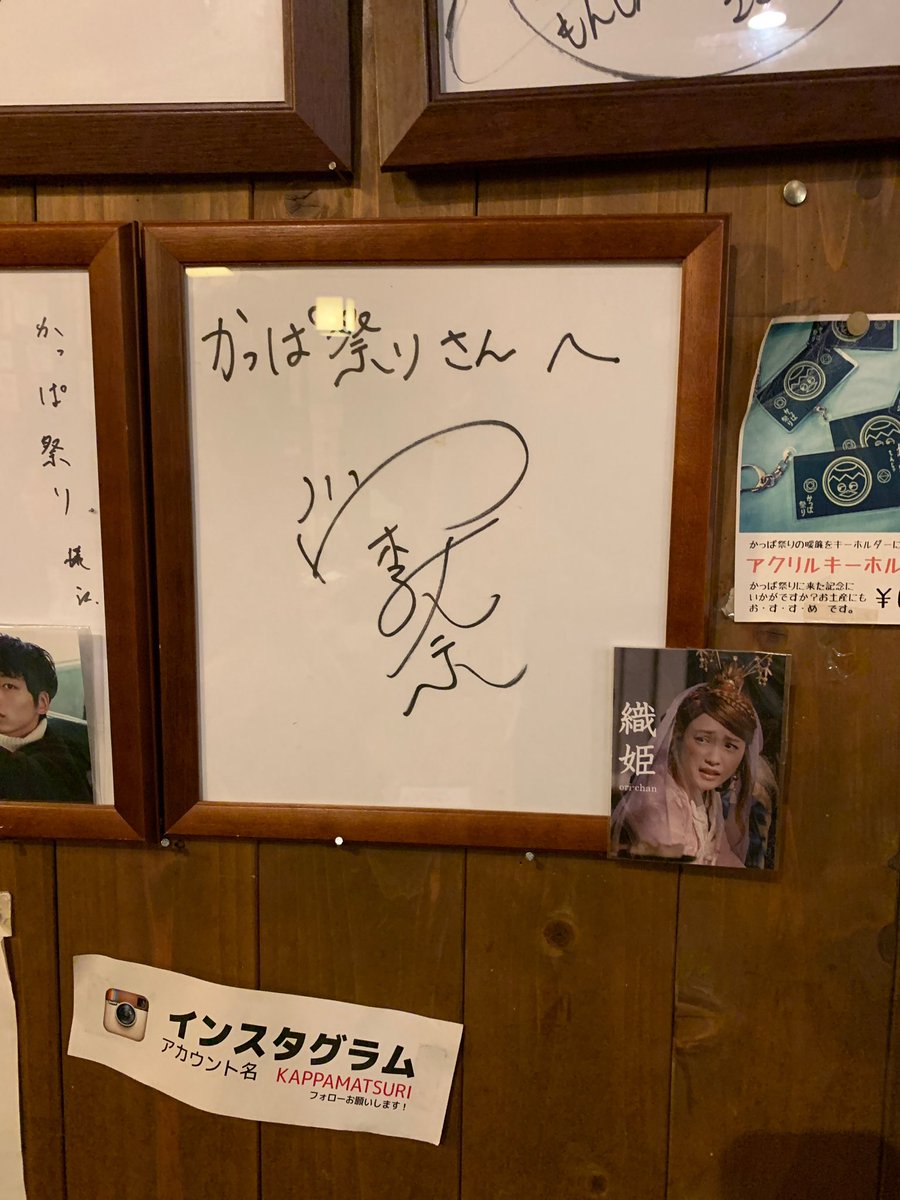 もんじ
かっぱ祭りさんへ
かっぱ祭り
様江
かっぱ祭り
かっぱ祭りの暖簾をキーホルダーに
アクリルキーホル
かっぱ祭りに来た記念に
いかがですか?お土産にも
お・す・す・め です。
¥
織姫
ori-chan
インスタグラム
アカウント名 KAPPAMATSURI
フォローお願いします!